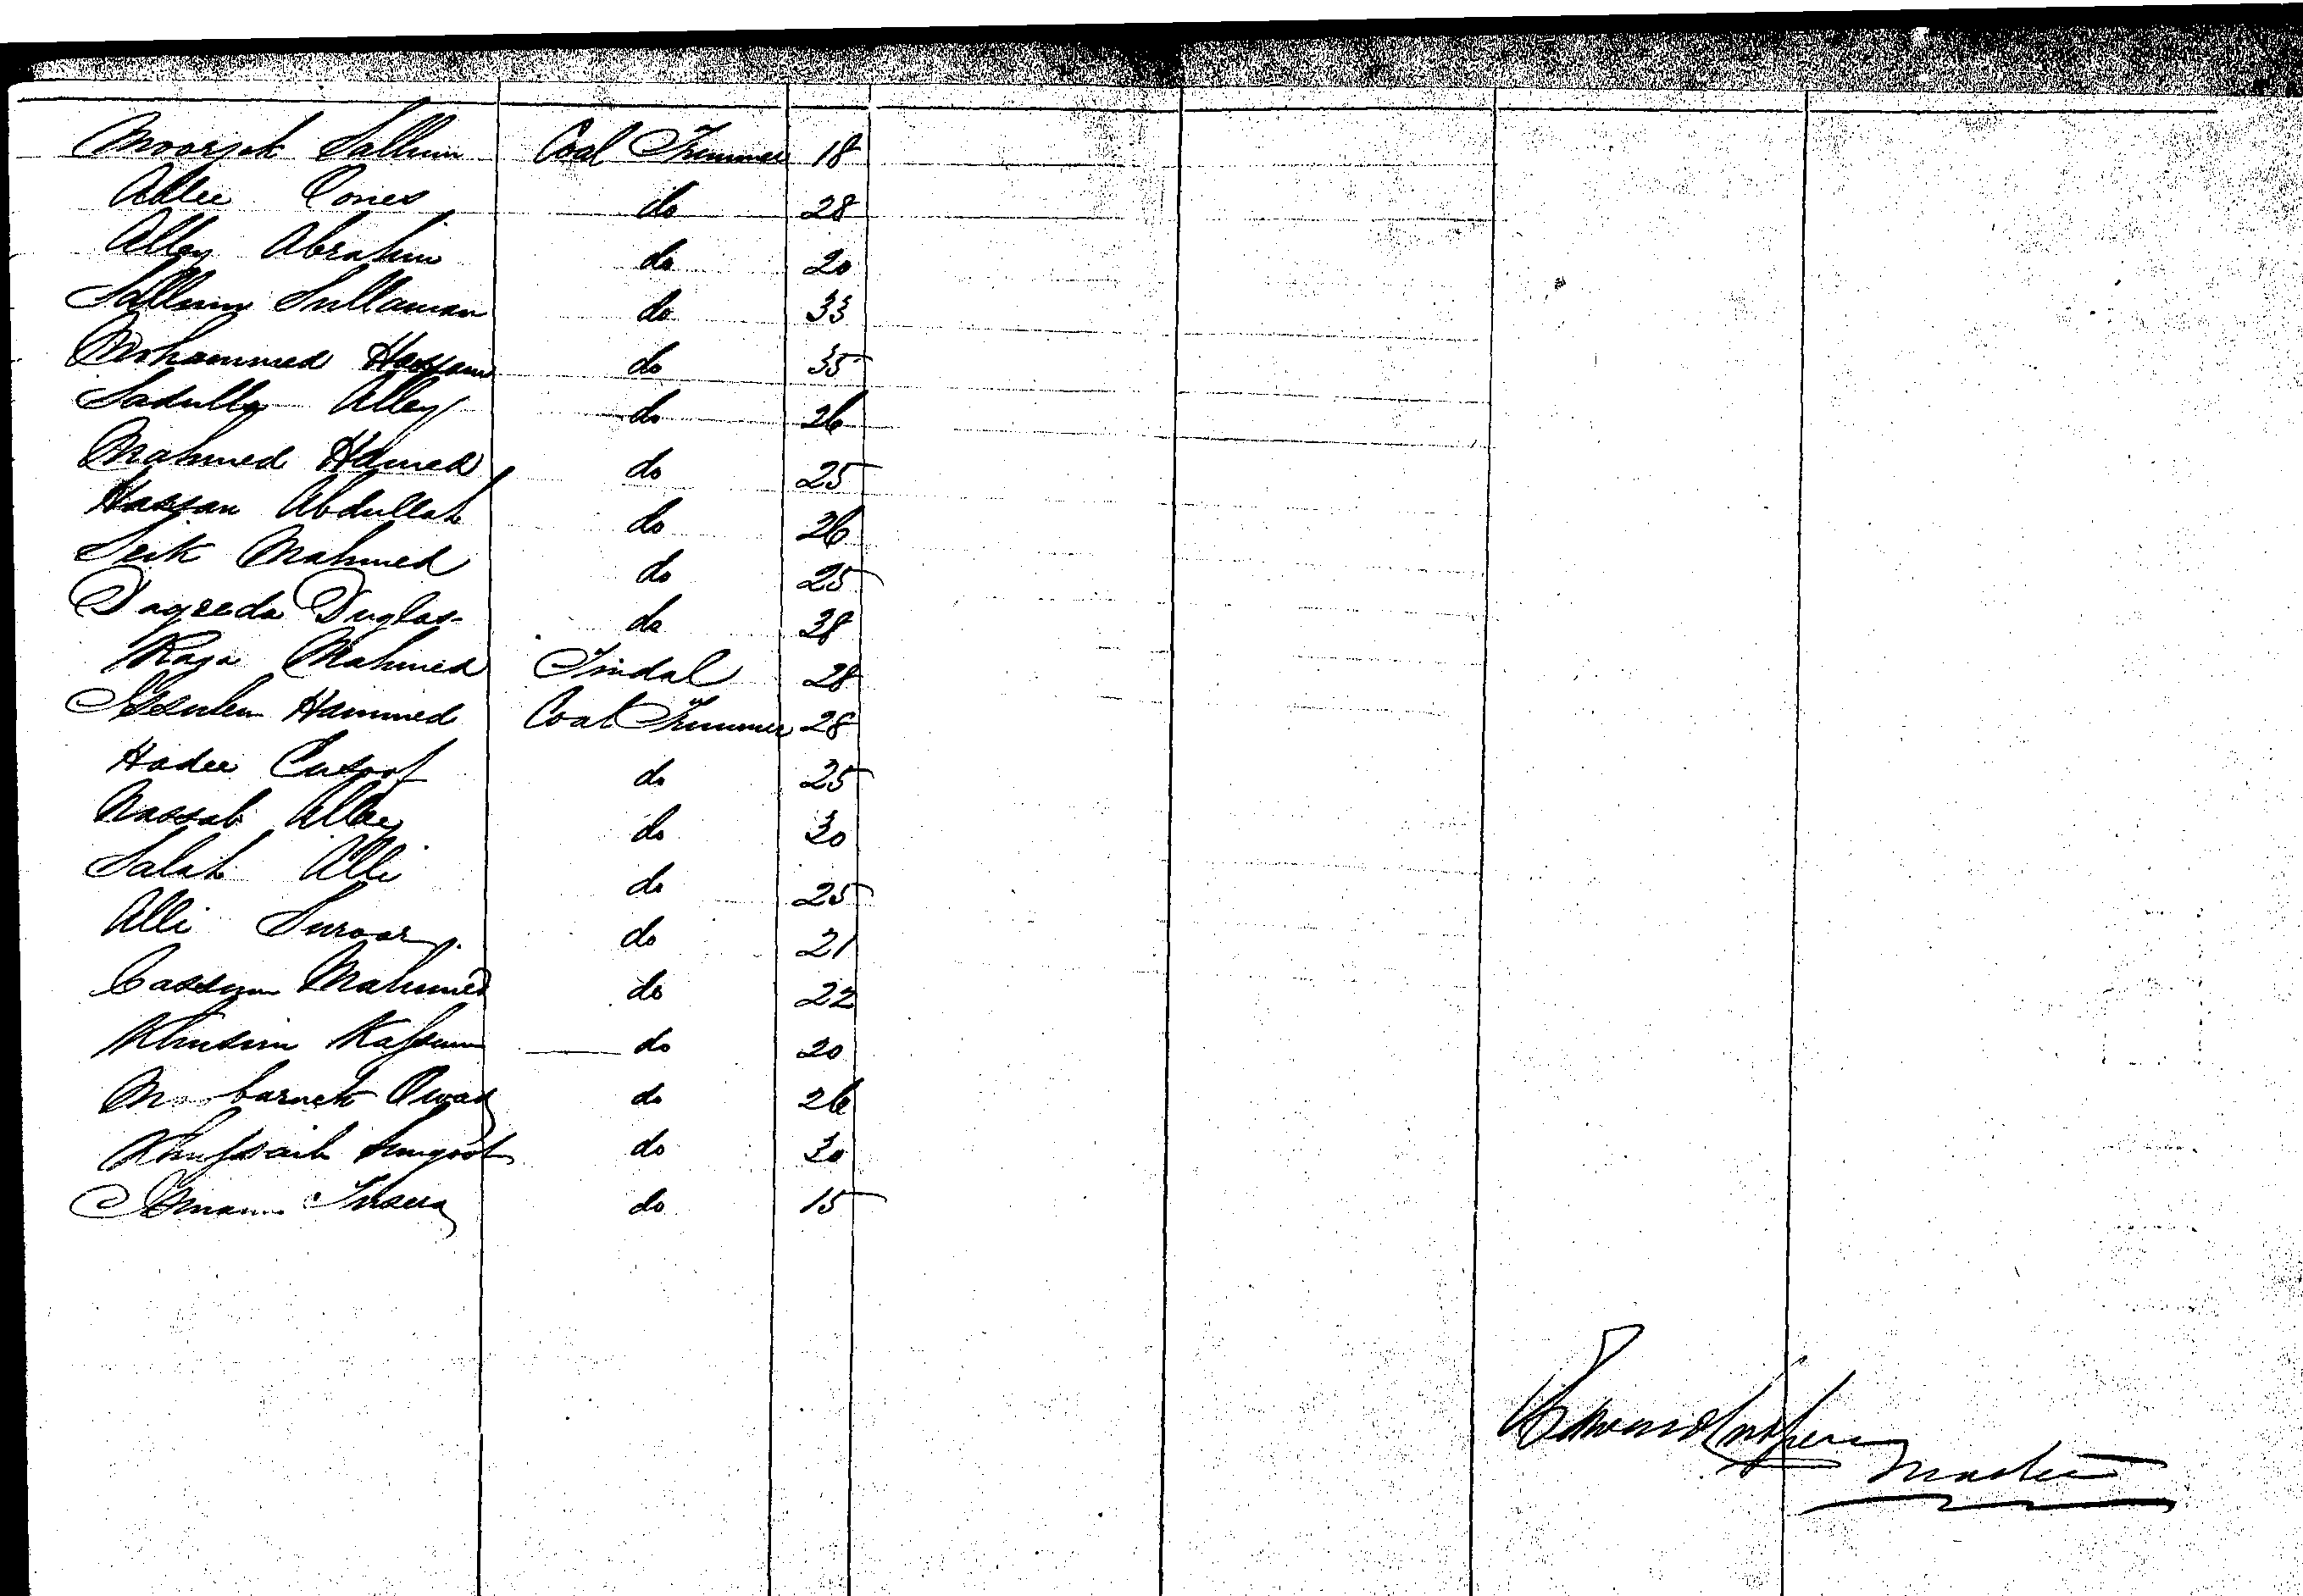 Moorjek Sallum Coal Trimmer 18
Allee Ones do 28
Alley Abrahim do 20
Sallum Sullaman do 33
Mohammed Hassan do 35
Sadulla Alley do 26
Mahmed Hamed do 25
Hassan Abdullah do 26
Seik Mahmed do 25
Dagreda Duglas do 38
Raga Mahmed Tindal 28
Hammed Coal Trimmer 28
Hadee Eusoof do 25
Nassab Alley do 30
Salah Alli do 25
Alli Suroor do 21
Cassum Mahmed do 22
Kassum do 20
Owad do 26
do 30
do 15
Master